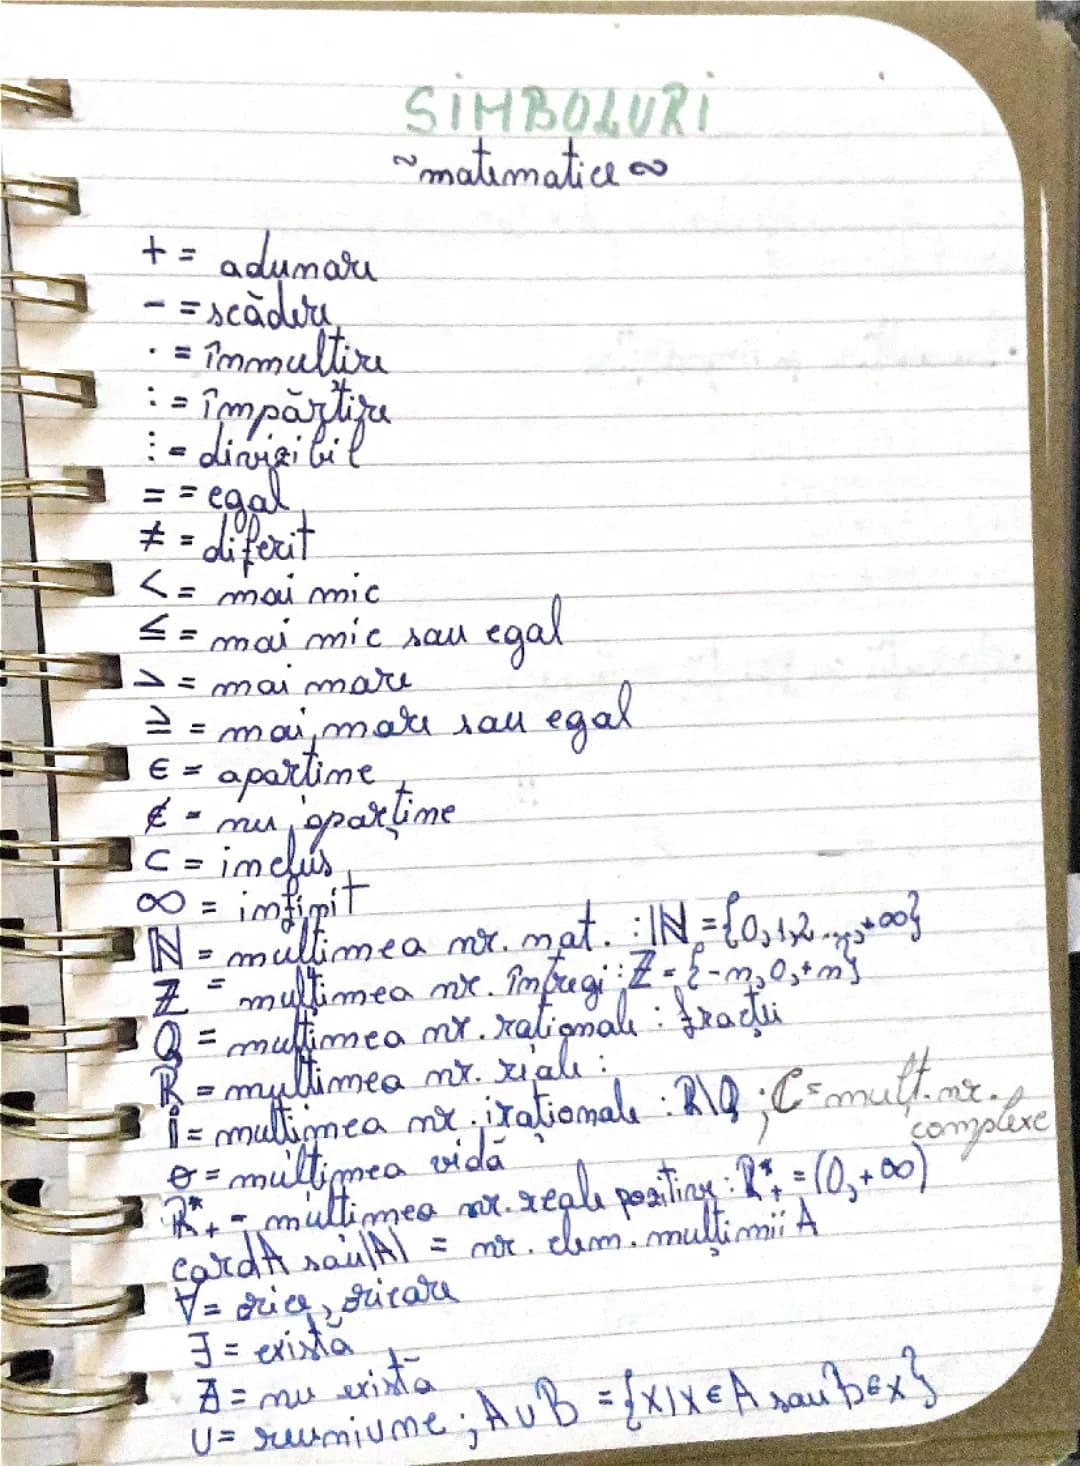 SIMBOLURI
~matematice ∞
+ = adunare
- = scădere
· = înmulțire
: = împărțire
⋮ = divizibil
= = egal
≠ = diferit
< = mai mic
≤ = mai mic sau egal
> = mai mare
≥ = mai mare sau egal
∈ = aparține
∉ = nu aparține
⊂ = inclus
∞ = infinit
ℕ = mulțimea nr. nat. : ℕ = {0,1,2...,+∞}
ℤ = mulțimea nr. întregi : ℤ = {-n,0,+n}
ℚ = mulțimea nr. raționale : fracții
ℝ = mulțimea nr. reale :
𝕀 = mulțimea nr. iraționale : ℝ\ℚ ; C = mult. nr. complexe
∅ = mulțimea vidă
ℝ*₊ = mulțimea nr. reale pozitive : ℝ*₊ = (0,+∞)
cardA sau |A| = nr. elem. mulțimii A
∀ = orice, oricare
∃ = există
∄ = nu există
∪ = reuniune ; A∪B = {x|x∈A sau b∈x}